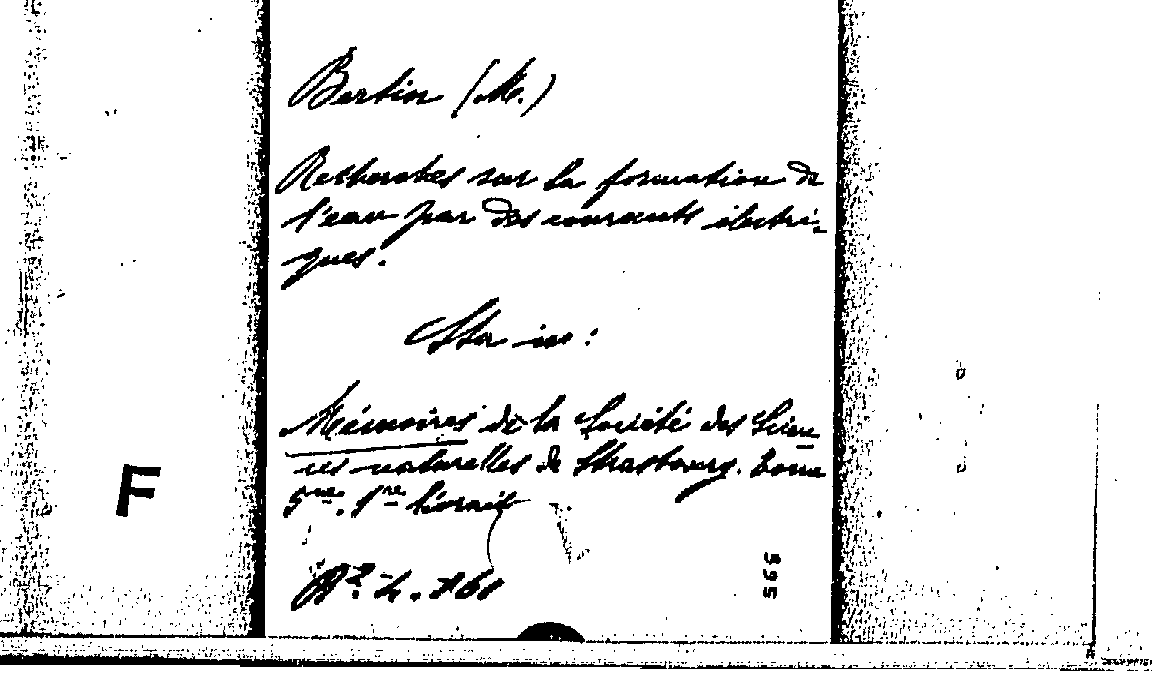 Bertin (M.)
Recherches sur la formation de
l'eau par des courants électri-
ques.
Sta in:
Mémoires de la Société des Scien
ces naturelles de Strasbourg. tome
5me. 1re livrait
F
565